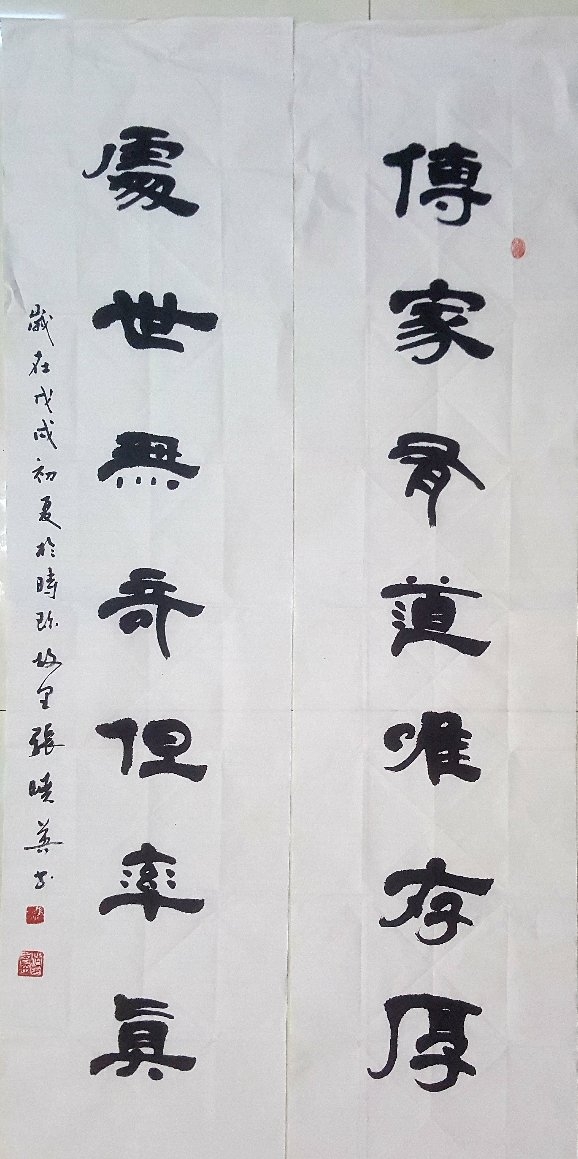 傳家有道唯存厚
處世無奇但率真
歲在戊戌初夏於時珍故里張曉英書